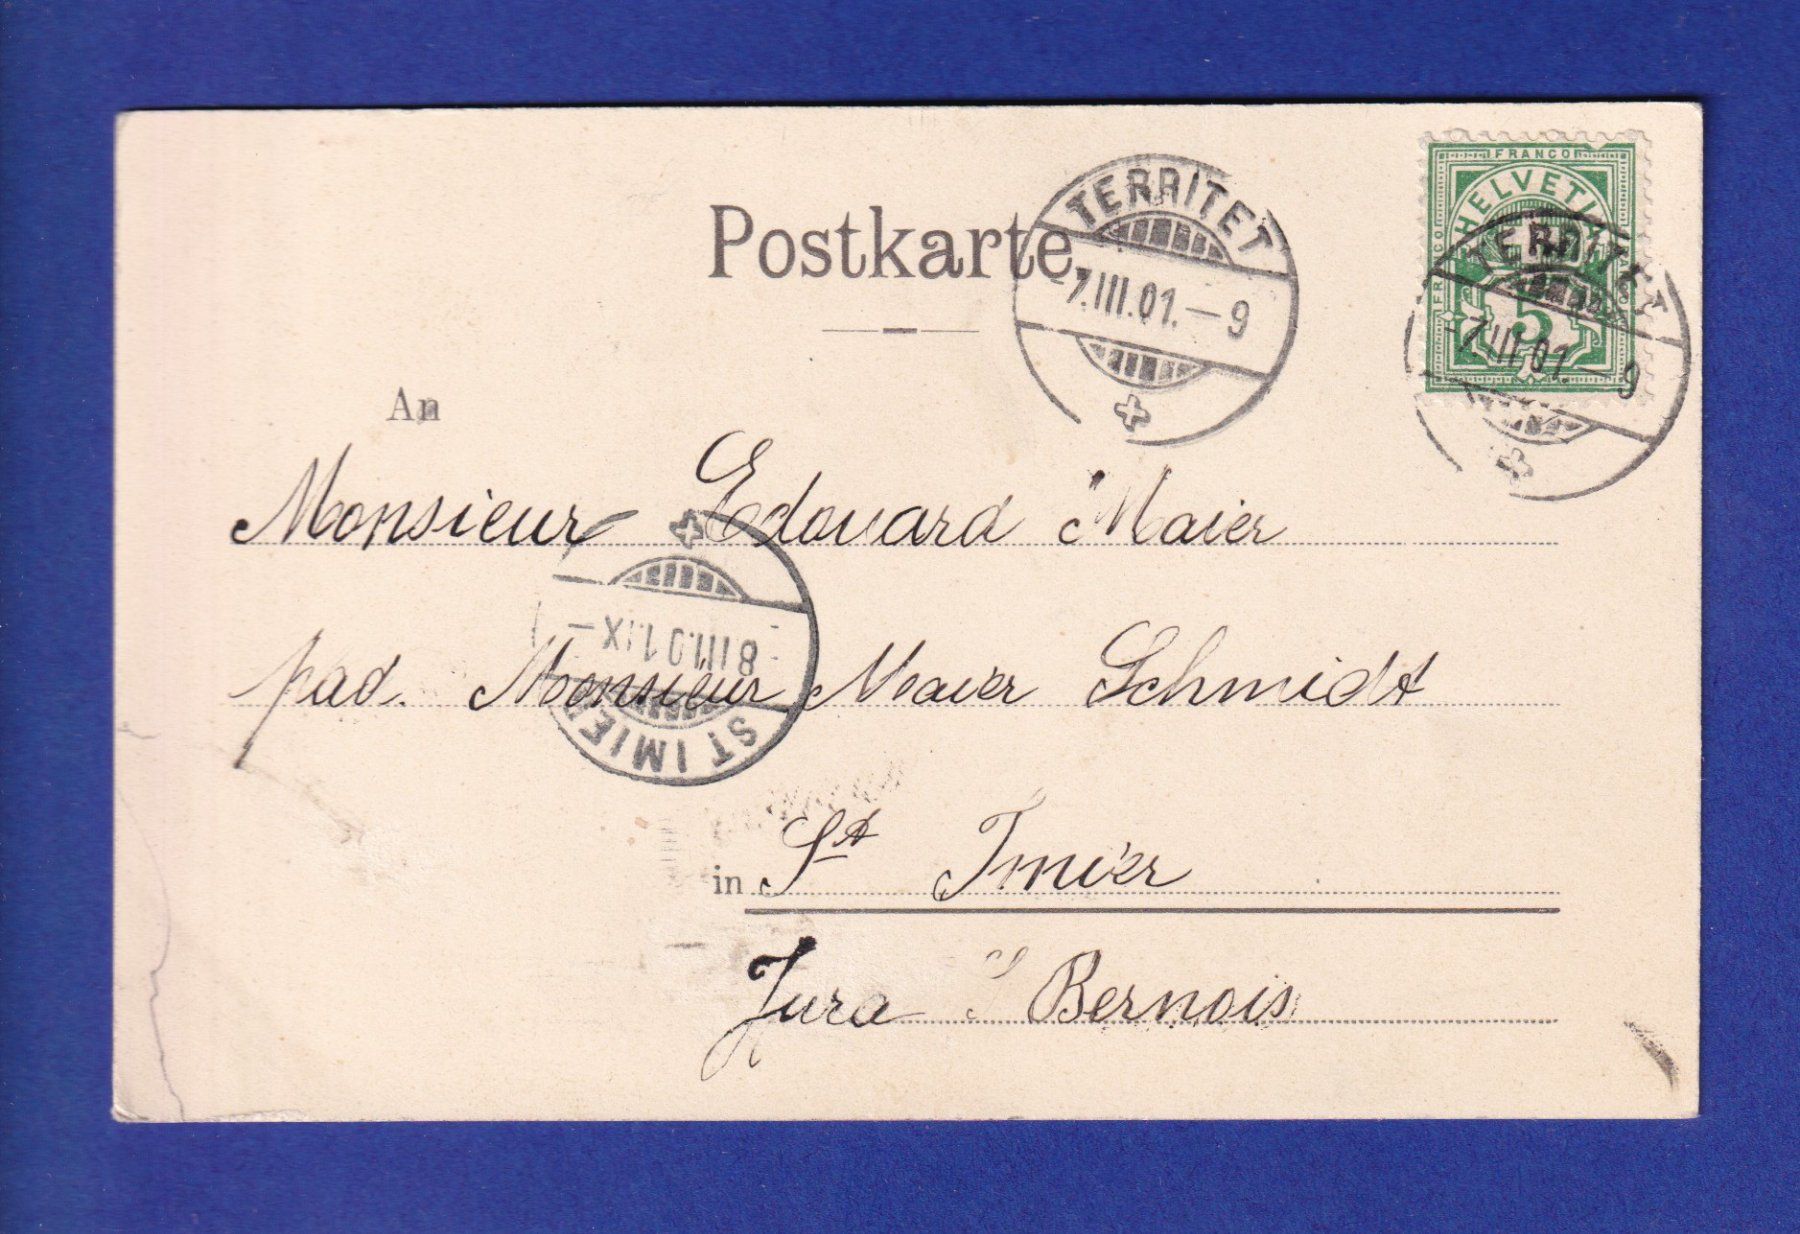 FRANCO
HELVETIA
FRANCO
5
TERRITET
-7.III.01.-9
Postkarte
TERRITET
-7.III.01.-9
An
Monsieur Edouard Maier
pad. Monsieur Maier Schmidt
8.III.01.IX-
ST IMIER
in St Imier
Jura Bernois